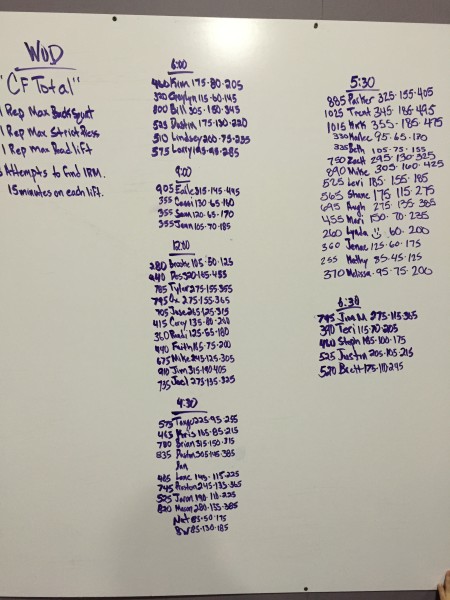 WOD
"CF Total"
1 Rep Max Back Squat
1 Rep Max Strict Press
1 Rep Max Dead lift
3 Attempts to find 1RM.
15 minutes on each lift.
6:00
460 Kim 175-80-205
320 115-60-145
800 Bill 305-150-345
525 Dustin 175-130-220
510 Lindsey 200-75-235
575 Larry 195-95-285
9:00
905 315-145-445
355 Cassi 130-65-160
355 Sam 120-65-170
355 Jenn 100-70-185
12:00
280 Brooke 105-50-125
940 Des 320-165-455
785 Tyler 275-155-355
795 Ox 275-155-365
705 Jose 265-125-315
415 Corey 135-80-200
360 125-55-180
440 Faith 165-75-200
675 Mike 245-125-305
910 Jim 315-190-405
735 Joel 275-135-325
4:30
575 225-95-255
465 165-85-215
780 Brian 315-150-315
835 Dustin 305-145-385
Ian
485 Lane 145-115-225
745 Preston 245-135-365
525 Jaron 190-110-225
820 Mason 280-155-385
Nat 85-50-175
BW 85-130-185
5:30
885 Parker 325-155-405
1025 Trent 345-185-495
1015 Hirk 355-185-475
330 95-65-170
335 Beth 105-75-155
750 Zach 295-130-325
890 Mike 305-160-425
525 Levi 185-155-185
565 Shane 175 115-275
695 Hugh 275-135-285
455 Mari 150-70-235
260 Lynda 60-200
360 Jenae 125-60-175
255 Mathy 85-45-125
370 Melissa 95-75-200
6:30
795 275-115-365
390 Teri 115-70-205
460 Steph 185-100-175
525 Justin 205-105-215
520 Brett 175-110-295